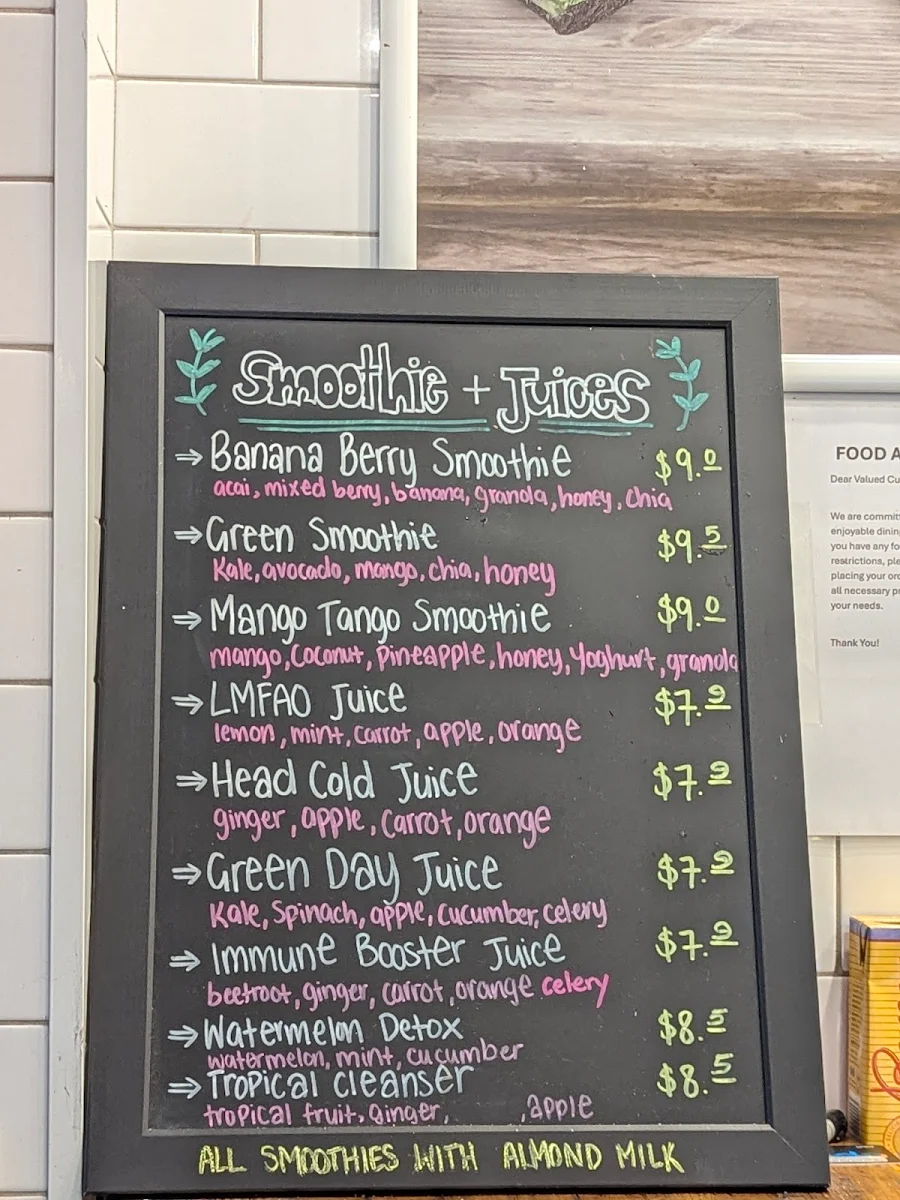 Smoothie + Juices
⇒ Banana Berry Smoothie $9.0
acai, mixed berry, banana, granola, honey, chia
⇒ Green Smoothie $9.5
Kale, avocado, mango, chia, honey
⇒ Mango Tango Smoothie $9.0
mango, Coconut, pineapple, honey, Yoghurt, granola
⇒ LMFAO Juice $7.9
lemon, mint, carrot, apple, orange
⇒ Head Cold Juice $7.9
ginger, apple, carrot, orange
⇒ Green Day Juice $7.9
Kale, Spinach, apple, cucumber, celery
⇒ Immune Booster Juice $7.9
beetroot, ginger, carrot, orange celery
⇒ Watermelon Detox $8.5
watermelon, mint, cucumber
⇒ Tropical cleanser $8.5
tropical fruit, ginger, , apple
ALL SMOOTHIES WITH ALMOND MILK
FOOD A
Dear Valued Cu
We are commit
enjoyable dinin
you have any fo
restrictions, ple
placing your ord
all necessary p
your needs.
Thank You!